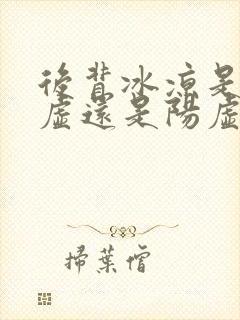 後背冰涼是
虛還是陽虛
掃葉僧